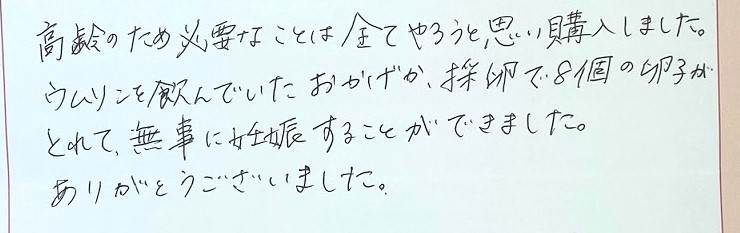 高齢のため必要なことは全てやろうと思い購入しました。
ウムリンを飲んでいたおかげか、採卵で8個の卵子が
とれて、無事に妊娠することができました。
ありがとうございました。